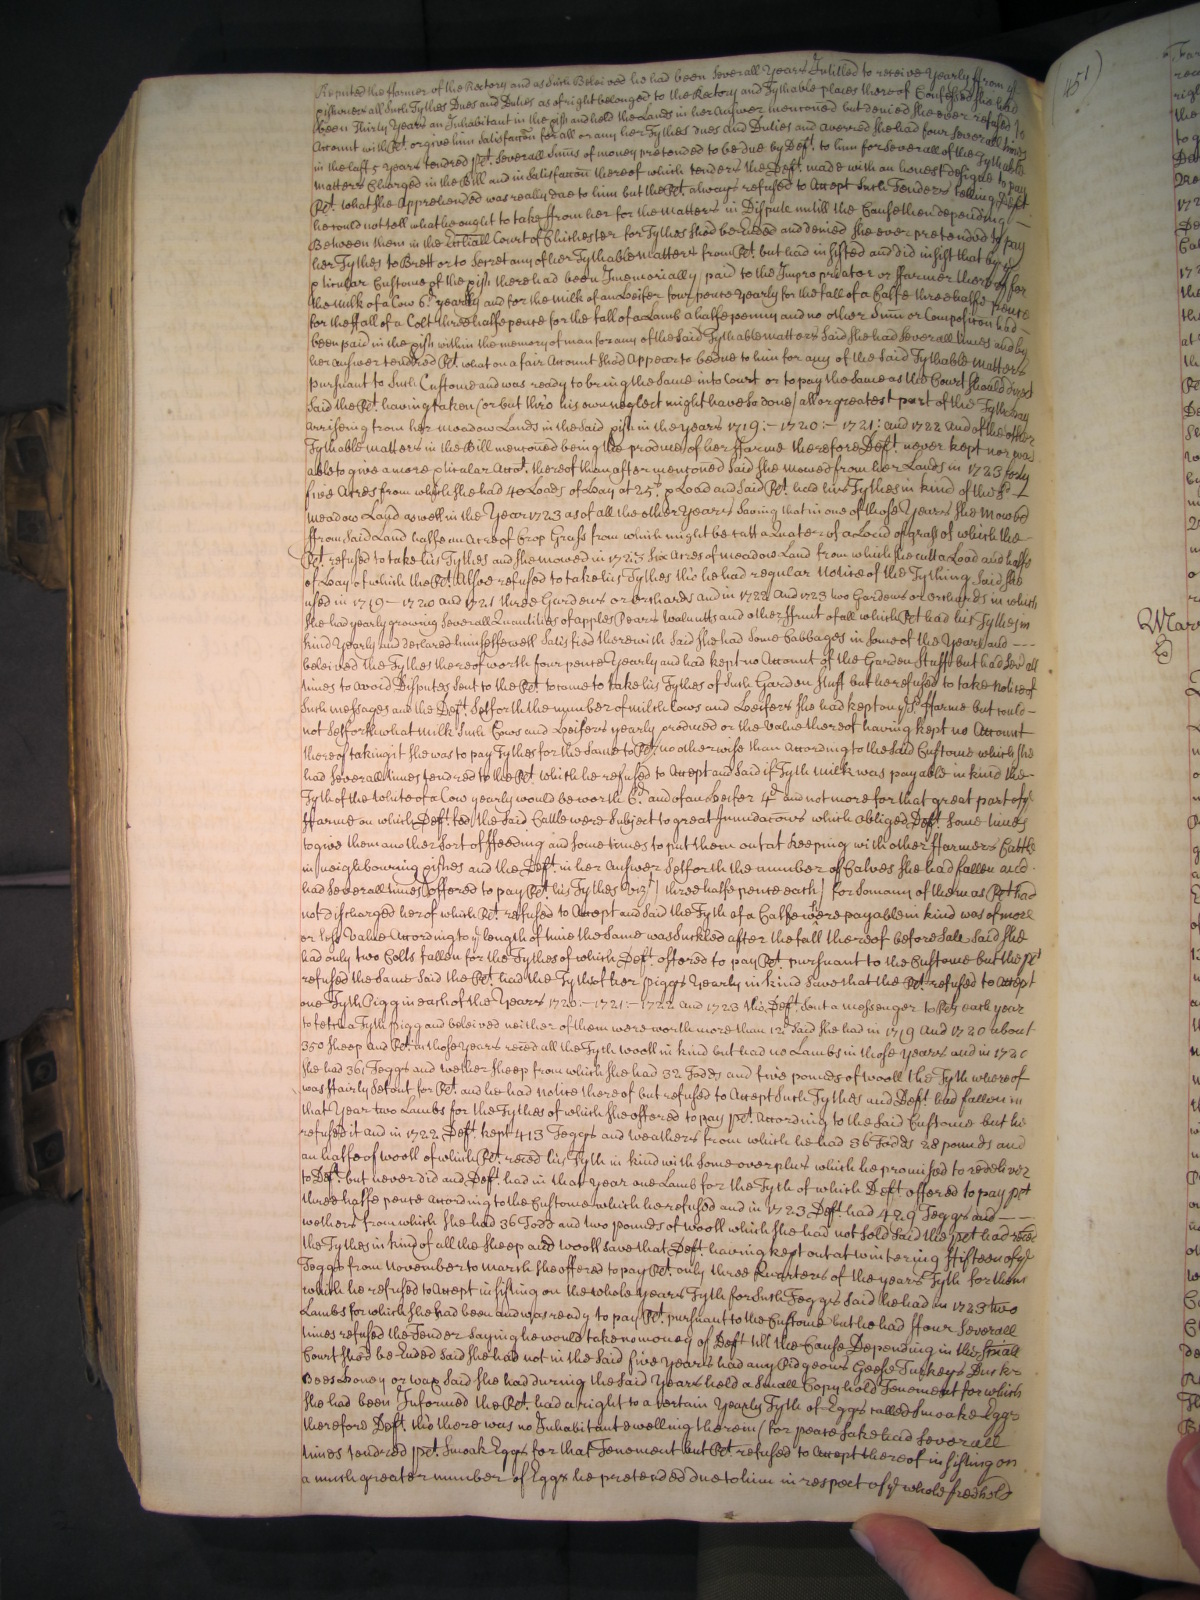 Reputed the ffarmer of the Rectory and as Such Beleived he had been Severall Years Intitled to receive Yearly ffrom ye
pishoners all Such Tythes Dues and Duties as of right belonged to the Rectory and Tythable places thereof Confessed she had
been Thirty Years an Inhabitant in the pish and held the Lands in her Answer mencõned but denied she ever refused to
Account with Plt. or give him Satisfaccõn for all or any her Tythes dues and Duties and averred she had four severall times
in the last 5 Years tendred Plt. Severall Sum̃s of money pretended to be due by Deft. to him for Severall of the Tythable
matters Charged in the Bill and in Satisfaccõn thereof which tenders the Deft. made with an honest designe to pay
Plt. what she Apprehended was really due to him but the Plt. always refused to Accept Such Tenders telling Deft.
he could not tell what he ought to take ffrom her for the Matters in Dispute untill the Cause then depending
Between them in the Ecc̃liall Court of Chichester for Tythes Shod be ended and denied She ever pretended to pay
her Tythes to Brett or to Secret any of her Tythable matters from Plt. but had insisted and did insist that by ye
pticular Custome of the pish there had been Imemorially paid to the Impropriator or ffarmer thereof for
the milk of a Cow 6d. yearly and for the milk of an Heifer four pence yearly for the fall of a Calfe three halfe pence
for the ffall of a Colt three halfe pence for the fall of a Lamb a halfe penny and no other Sum̃ or Composition had
been paid in the pish within the memory of man for any of the Said Tythable matters Said She had Severall times and by
her Answer tendred Plt. what on a fair Account Shod Appear to be due to him for any of the Said Tythable matters
pursuant to Such Custome and was ready to bring the Same into Court or to pay the Same as the Court Should direct
Said the Plt. having taken (or but thro his own neglect might have So done) all or greatest part of the Tyth hay
arriseing from her meadow Lands in the Said pish in the years 1719:- 1720:- 1721: and 1722 and of the other
Tythable matters in the Bill mencõned being the produce of her ffarme therefore Deft. never kept nor was
able to give a more pticular Acct. thereof than after mencõned Said She mowed from her Lands in 1723 forty
five Acres from which She had 40 Loads of Hay at 25s. p Load and Said Plt. had his Tythes in kind of the Sd.
meadow Land as well in the Year 1723 as of all the other Years Saving that in one of those Years She mowed
ffrom Said Land halfe an Acre of Crop Grass from which might be cutt a Quater of a Load of grass of which the
Plt. refused to take his Tythes and She mowed in 1723 Six Acres of meadow Land from which She cutt a Load and halfe
of Hay of which the Plt. Alsoe refused to take his Tythes tho' he had regular notice of the Tything Said She
used in 1719 - 1720 and 1721 three Gardens or orchards and in 1722 and 1723 two Gardens or orchards in which
She had yearly growing Severall Quantities of apples Pears Walnutts and other ffruit of all which Plt had his Tythes in
kind Yearly and declared himselfe well Satisfied therewith Said She had Some Cabbages in Some of the Years and - - -
beleived the Tythes thereof worth four pence Yearly and had kept no Account of the Garden Stuff but had Severall
times to avoid Disputes Sent to the Plt. to come to take his Tythes of Such Garden Stuff but he refused to take notice of
Such messages and the Deft. Setforth the number of milch Cows and Heifers She had kept on ye Sd. ffarme but could -
not Setforth what milk Such Cows and Heifers yearly produced or the Value thereof having kept no Account
thereof taking it She was to pay Tythes for the Same to Plt. no otherwise than According to the Said Custome which She
had Severall times tendred to the Plt. which he refused to Accept and Said if Tyth milk was payable in kind the
Tyth of the White of a Cow yearly would be worth 6d. and of an Heifer 4d and not more for that great part of ye
ffarme on which Deft. fed the Said Cattle were Subject to great Inundacõns which obliged Deft. Some times
to give them another Sort of ffeeding and Some times to put them out at keeping with other ffarmers Cattle
in neighbouring pishes and the Deft. in her Answer Setforth the number of Calves She had fallen and
had Severall times offered to pay Plt. his Tythes (vizt.) three halfe pence each) for So many of them as Plt had
not discharged her of which Plt. refused to Accept and Said the Tyth of a Calfe were payable in kind was of more
or less Value According to ye length of time the Same was Suckled after the fall thereof before Sale Said She
had only two Colts fallen for the Tythes of which Deft. offered to pay Plt. pursuant to the Custome but the Plt
refused the Same Said the Plt. had the Tyths of her piggs Yearly in kind Save that the Plt. refused to accept
one Tyth Pigg in each of the Years 1720:- 1721:- 1722 and 1723 tho' Deft. Sent a messenger to Plt. each year
to fetch a Tyth pigg and beleived neither of them were worth more than 12d. Said She had in 1719 and 1720 about
350 Sheep and Plt. in those Years reced all the Tyth wooll in kind but had no Lambs in those years and in 1721
She had 361 Teggs and wether Sheep from which She had 32 Todds and five pounds of wooll the Tyth whereof
was ffairly Setout for Plt. and he had notice thereof but refused to Accept Such Tythes and Deft. had fallen in
that Year two Lambs for the Tythes of which She offered to pay Plt. According to the Said Custome but he
refused it and in 1722 Deft. kept 413 Teggs and weathers from which he had 36 Todds 28 pounds and
an halfe of wooll of which Plt. reced his Tyth in kind with Some overplus which he promised to redeliver
to Deft. but never did and Deft. had in that year one Lamb for the Tyth of which Deft. offered to pay Plt
three halfe pence According to the Custome which he refused and in 1723 Deft. had 429 Teggs and - - -
wethers from which She had 36 Todd and two pounds of wooll which She had not Sold Said the Plt had reced
the Tythes in kind of all the Sheep and wooll Save that Deft. having kept out at wintering ffifteen of ye
Teggs from November to March She offered to pay Plt. only three Quarters of the years Tyth for them
which he refused to Accept insisting on the whole Years Tyth for Such Teggs Said he had in 1723 two
Lambs for which She had been and was ready to pay Plt. pursuant to the Custome but he had ffour Severall
times refused the Tender Saying he would take no money of Deft till the Cause Depending in the Spũall
Court Shod be Ended Said She had not in the Said five Years had any Pidgeons Geese Turkeys Ducks
Bees honey or wax Said She had during the Said Years held a Small Copyhold Tenement for which
She had been Informed the Plt. had a right to a certain Yearly Tyth of Eggs called Smoake Eggs
therefore Deft. tho' there was no Inhabitant dwelling therein (for peace Sake had Severall
times tendred Plt. Smoak Eggs for that Tenement but Plt. refused to Accept thereof insisting on
a much greater number of Eggs he pretended due to him in respect of ye whole freehold
(451)